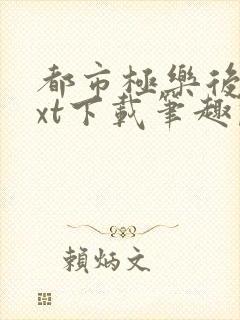 都市極樂後
xt下載筆趣
賴炳文